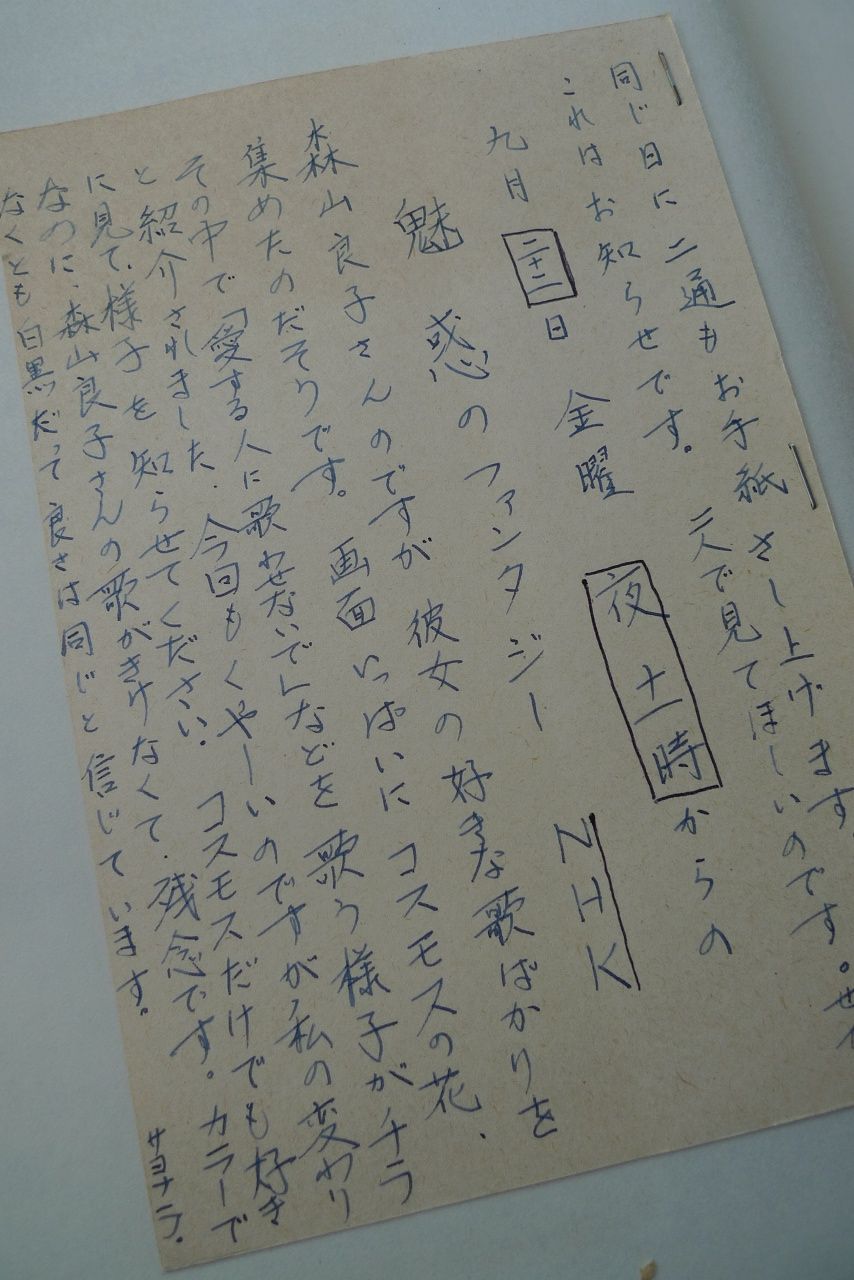 同じ日に二通もお手紙さし上げます。
これはお知らせです。二人で見てほしいのです。ぜひ
九月二十二日 金曜 夜十一時からの
NHK
魅惑のファンタジー
森山良子さんのですが 彼女の好きな歌ばかりを
集めたのだそうです。画面いっぱいにコスモスの花、
その中で「愛する人に歌わせないで」などを歌う様子がチラ
と紹介されました. 今回もくやしいのですが私の変わり
に見て、様子を知らせてください. コスモスだけでも好き
なのに、森山良子さんの歌がきけなくて. 残念です。カラーで
なくとも白黒だって良さは同じと信じています。
サヨナラ.